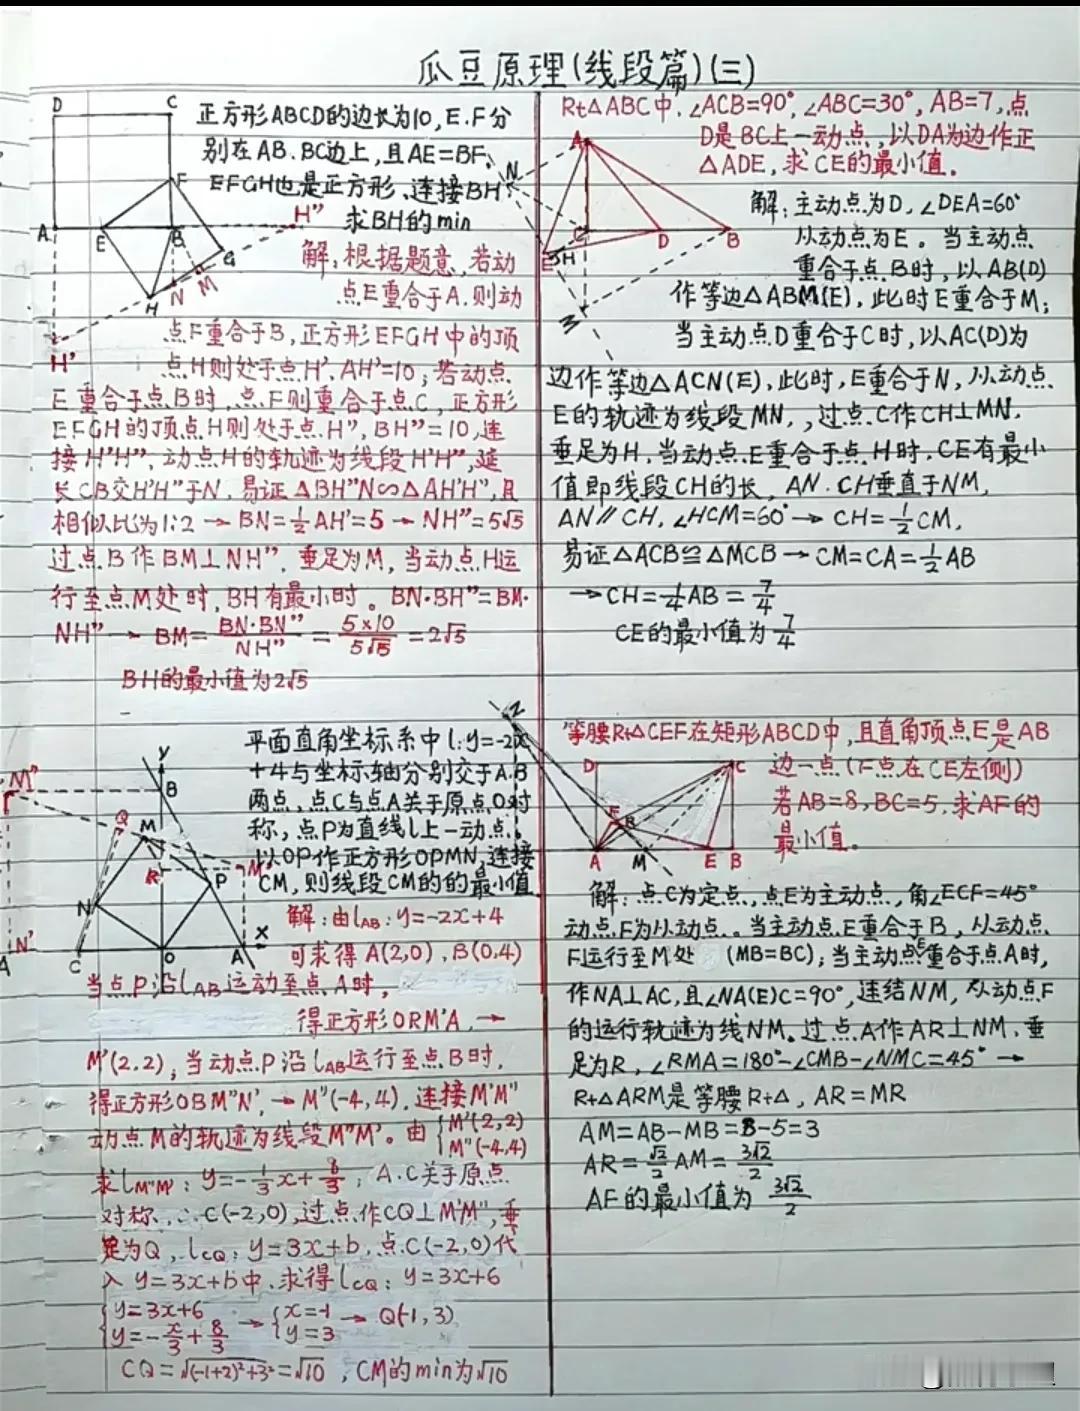 瓜豆原理(线段篇)(三)
正方形ABCD的边长为10,E.F分
别在AB.BC边上,且AE=BF,
EFGH也是正方形、连接BH,
求BH的min
解:根据题意,若动
点E重合于A.则动
点F重合于B,正方形EFGH中的顶
点H则处于点H'.AH'=10;若动点
E重合于点B时,点F则重合于点C,正方形
EFGH的顶点H则处于点H",BH"=10,连
接H'H",动点H的轨迹为线段H'H",延
长CB交H'H"于N,易证△BH"N∽△AH'H",且
相似比为1:2→BN=½AH'=5→NH"=5√5
过点B作BM⊥NH",垂足为M,当动点H运
行至点M处时,BH有最小时。BN·BH"=BM·
NH"→BM=BN·BN"/NH"=5×10/5√5=2√5
BH的最小值为2√5
D C F A E B H" G N M H H'
Rt△ABC中,∠ACB=90°,∠ABC=30°,AB=7,点
D是BC上一动点,以DA为边作正
△ADE,求CE的最小值。
解:主动点为D,∠DEA=60°
从动点为E。当主动点
重合于点B时,以AB(D)
作等边△ABM(E),此时E重合于M;
当主动点D重合于C时,以AC(D)为
边作等边△ACN(E),此时,E重合于N,从动点
E的轨迹为线段MN,,过点C作CH⊥MN,
垂足为H,当动点E重合于点H时,CE有最小
值即线段CH的长,AN.CH垂直于NM,
AN∥CH,∠HCM=60°→CH=½CM,
易证△ACB≌△MCB→CM=CA=½AB
→CH=¼AB=7/4
CE的最小值为7/4
A N C D B E H M
平面直角坐标系中l:y=-2x
+4与坐标轴分别交于A.B
两点,点C与点A关于原点O对
称,点P为直线l上一动点。
以OP作正方形OPMN,连接
CM,则线段CM的的最小值
解:由lAB:y=-2x+4
可求得A(2,0),B(0,4)
当点P沿lAB运动至点A时,
得正方形ORM'A,→
M'(2,2);当动点P沿lAB运行至点B时,
得正方形OBM"N',→M"(-4,4).连接M'M"
动点M的轨迹为线段M"M'。由{M'(2,2)
M"(-4,4)
求lM"M':y=-⅓x+8/3;A.C关于原点
对称,∴C(-2,0),过点作CQ⊥M'M",垂
足为Q,lCQ:y=3x+b,点C(-2,0)代
入y=3x+b中,求得lCQ:y=3x+6
{y=3x+6
y=-x/3+8/3→{x=-1
y=3→Q(-1,3)
CQ=√(-1+2)²+3²=√10,CM的min为√10
y B M" Q M R M' P N x N' C O A
等腰Rt△CEF在矩形ABCD中,且直角顶点E是AB
边一点(F点在CE左侧)
若AB=8,BC=5,求AF的
最小值。
解:点C为定点,点E为主动点,角∠ECF=45°
动点F为从动点。当主动点E重合于B,从动点
F运行至M处 (MB=BC);当主动点E重合于点A时,
作NA⊥AC,且∠NA(E)C=90°,连结NM,从动点F
的运行轨迹为线NM。过点A作AR⊥NM,垂
足为R,∠RMA=180°-∠CMB-∠NMC=45°→
Rt△ARM是等腰Rt△,AR=MR
AM=AB-MB=8-5=3
AR=√2/2AM=3√2/2
AF的最小值为3√2/2
N D C F R A M E B